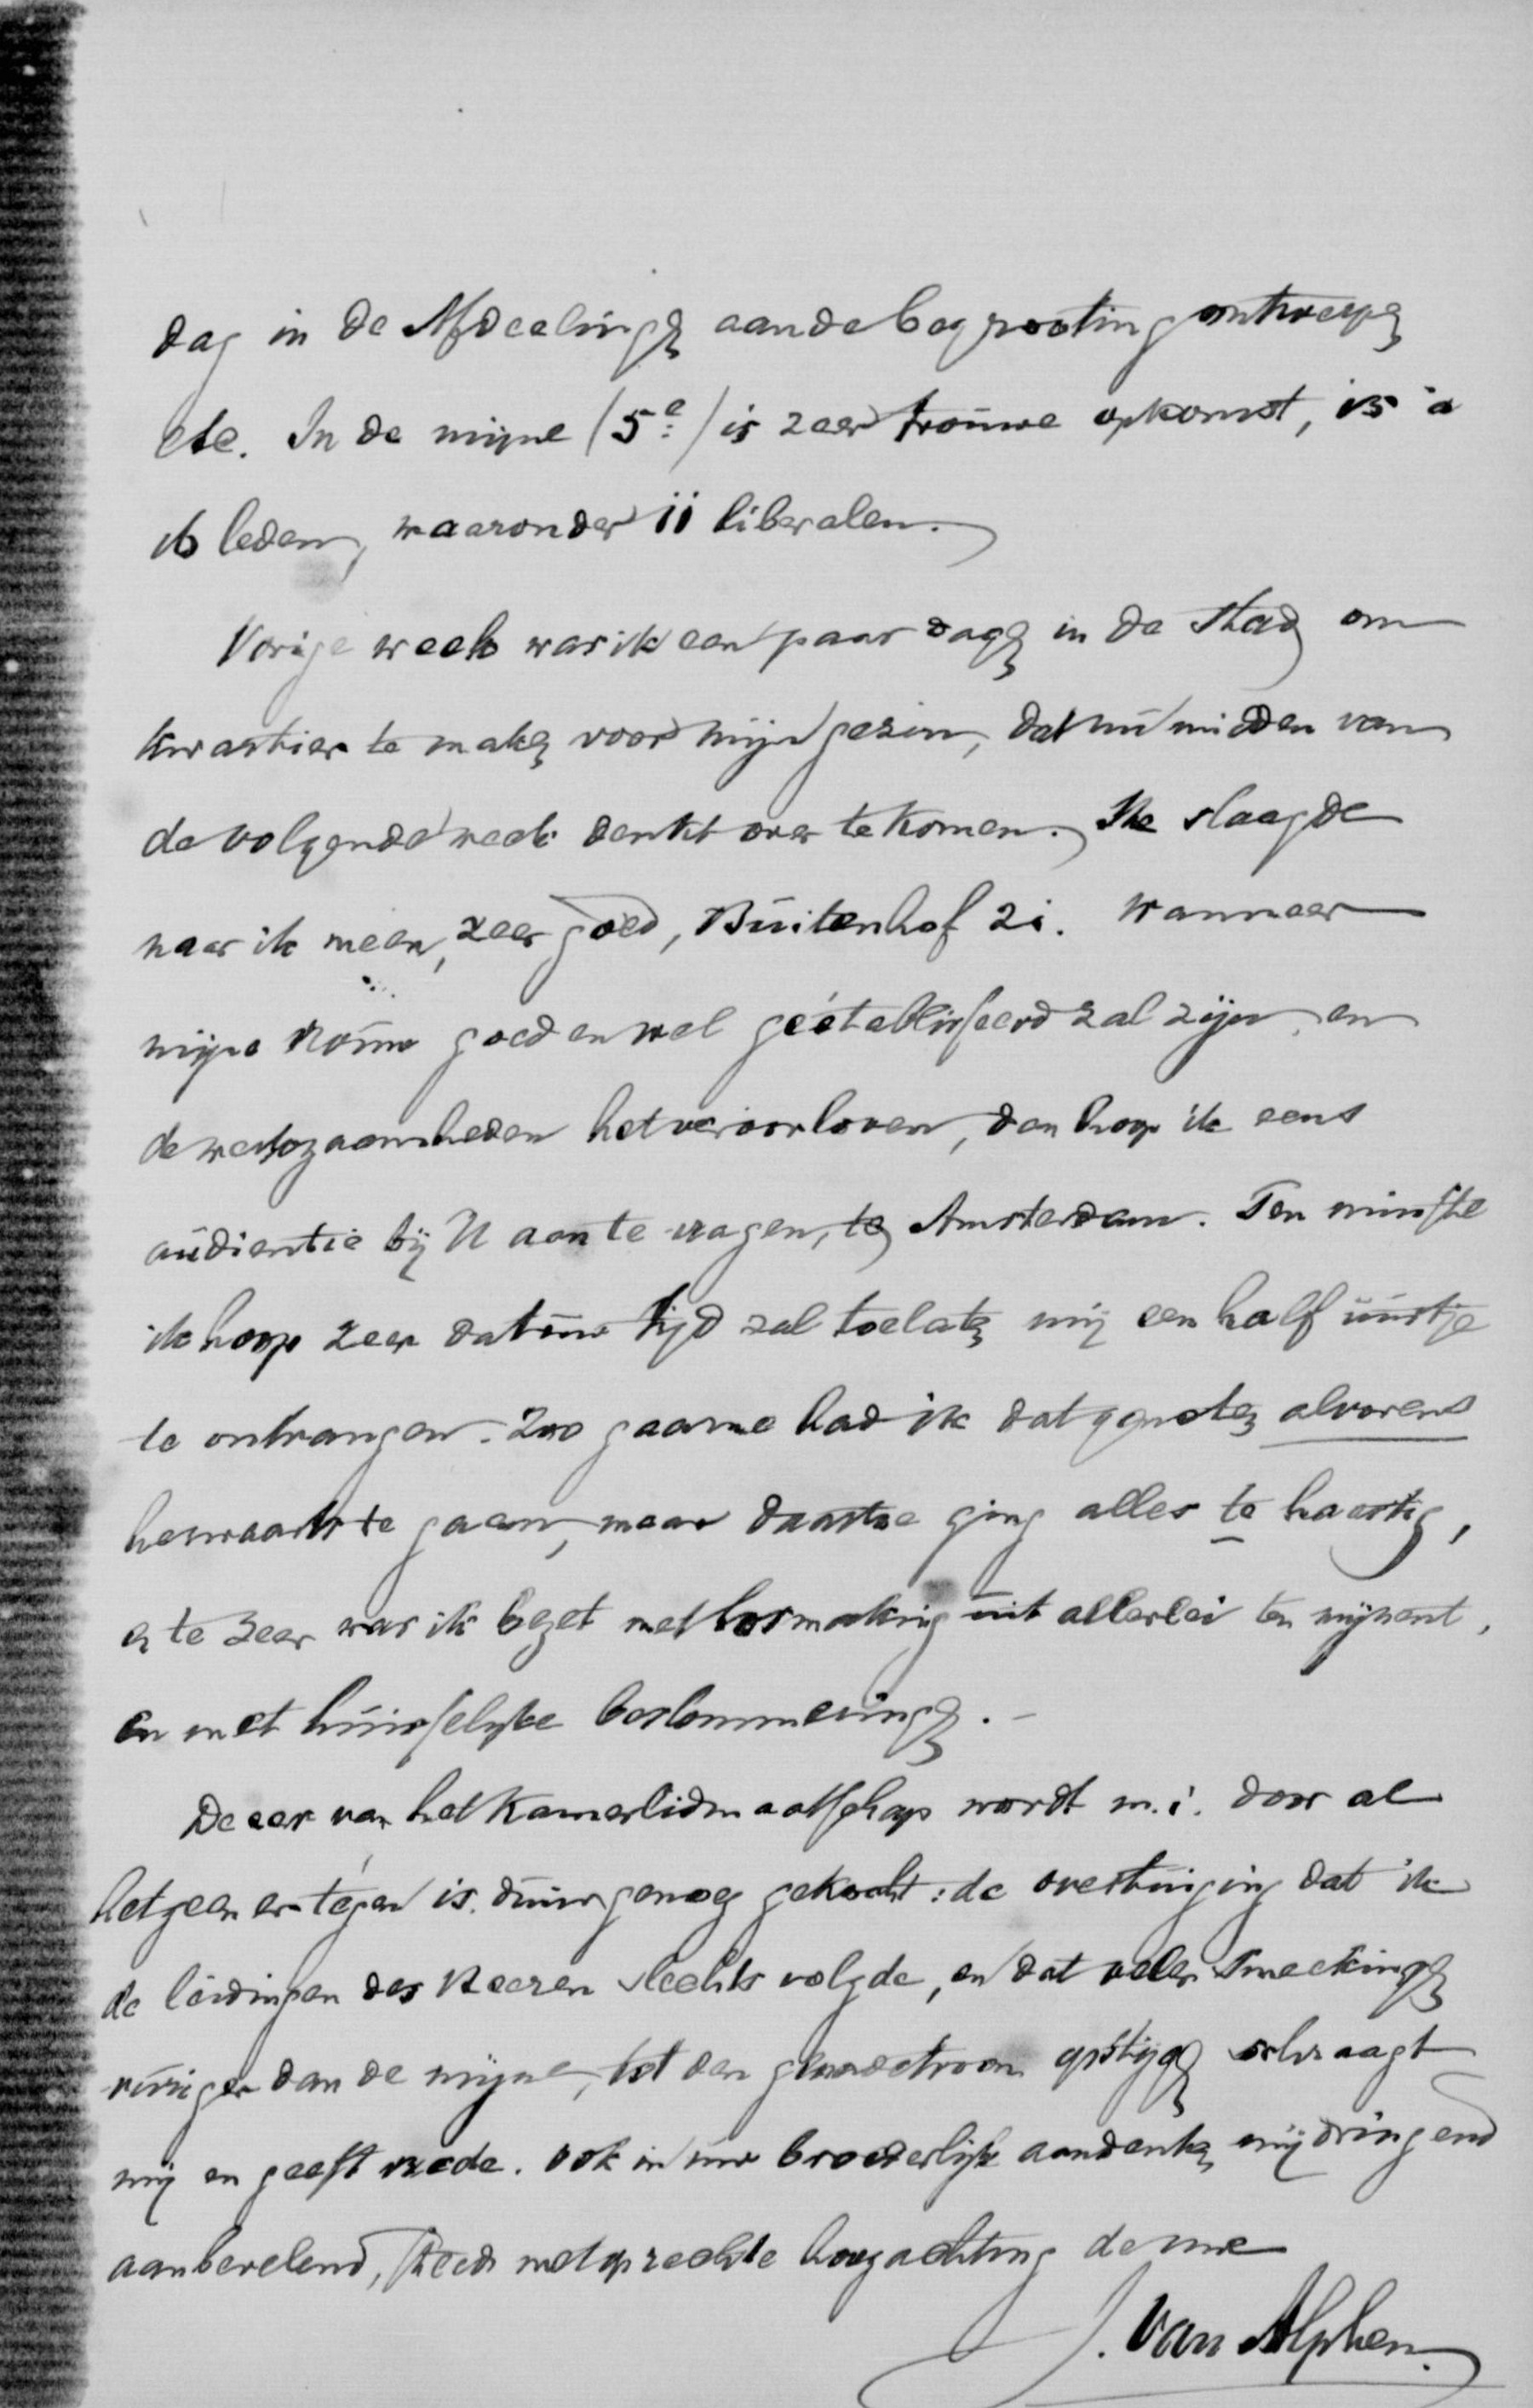 dag in de Afdeelingen aan de begrooting ontwerpen
etc. In de mijne (5e) is zeer trouwe opkomst, 15 à
16 leden, waaronder 11 liberalen.
Vorige week was ik een paar dagen in de stad om
kwartier te maken voor mijn gezin, dat nu midden van
de volgende week denkt over te komen. Ik slaagde
naar ik meen, zeer goed, Buitenhof 21. Wanneer
mijne vrouw goed en wel geëtablisseerd zal zijn, en
de werkzaamheden het veroorloven, dan hoop ik eens
audientie bij U aan te vragen, te Amsterdam. Ten minste
ik hoop zeer dat uw tijd zal toelaten mij een half uurtje
te ontvangen. Zoo gaarne had ik dat genoten alvorens
herwaarts te gaan, maar daartoe ging alles te haastig,
en te zeer was ik bezet met losmaking uit allerlei ten mijnent,
en met huisselijke beslommeringen. -
De eer van het Kamerlidmaatschap wordt m.i. door al
hetgeen er tegen is duur genoeg gekocht: de overtuiging dat ik
de leidingen des Heeren slechts volgde, en dat veler smeekingen
vuriger dan de mijne, tot den genadetroon opstijgen schraagt
mij en geeft vrede. Ook in uw broederlijk aandenken mij dringend
aanbevelend, steeds met oprechte hoogachting de uwe
J. van Alphen.